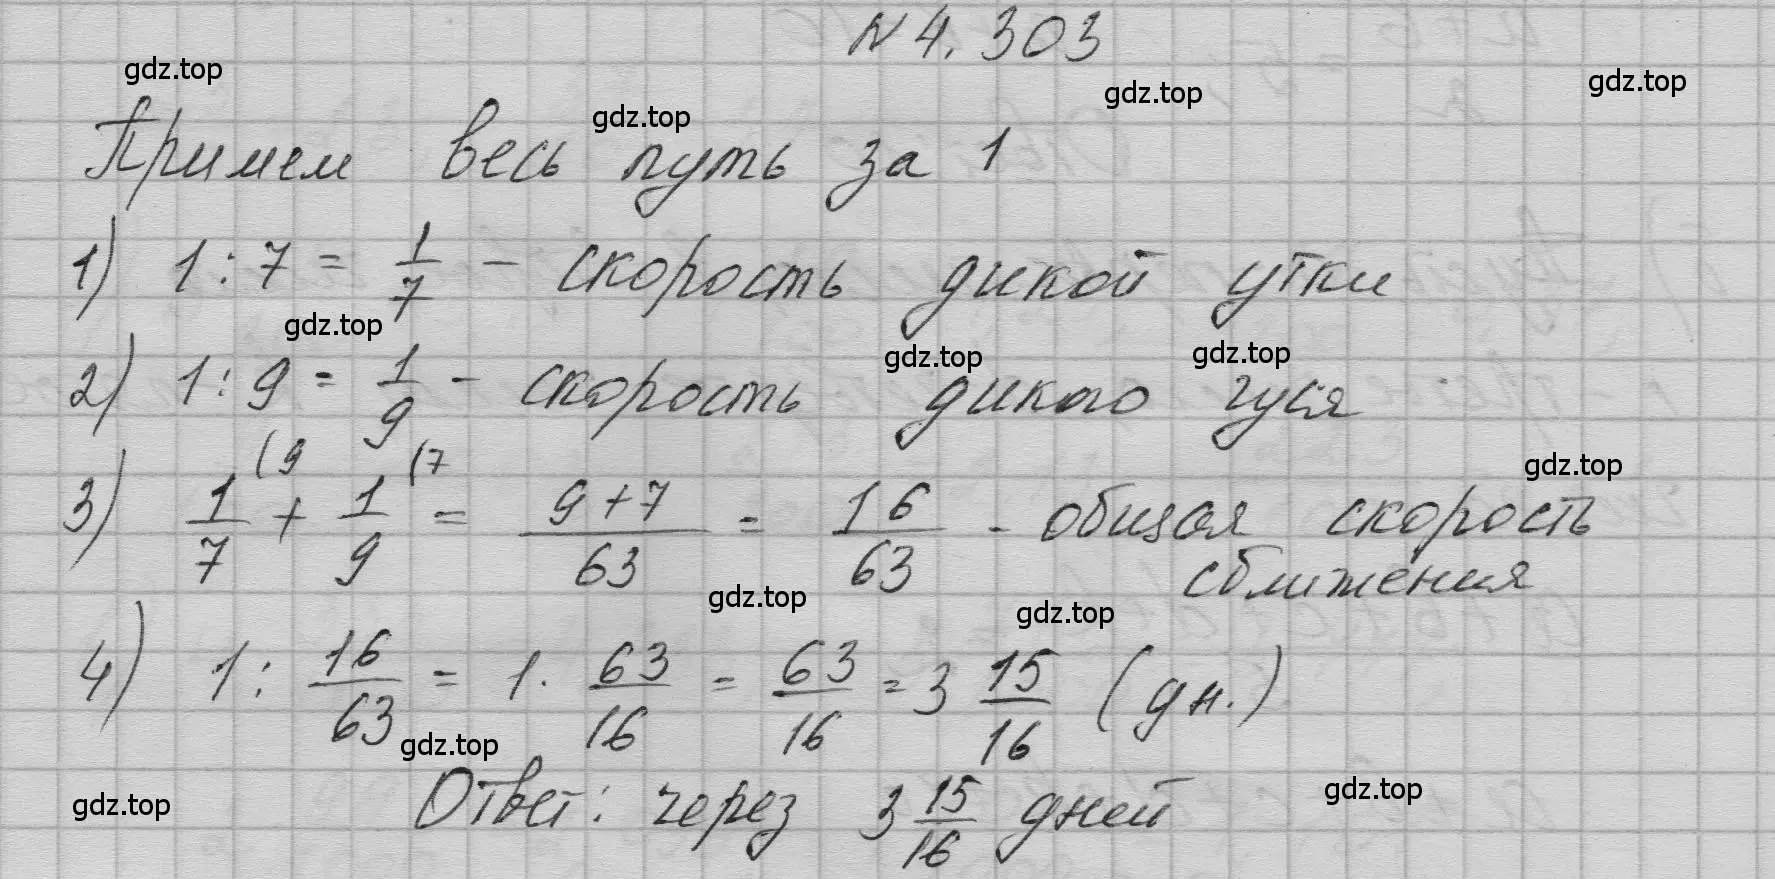 N 4.303
gdz.top gdz.top gdz.top gdz.top
Примем весь путь за 1
1) 1 : 7 = 1/7 - скорость дикой утки
gdz.top gdz.top gdz.top
2) 1 : 9 = 1/9 - скорость дикого гуся
3) 1/7 (9 + 1/9 (7 = 9+7/63 = 16/63 - общая скорость
gdz.top
сближения
gdz.top gdz.top
4) 1 : 16/63 = 1 · 63/16 = 63/16 = 3 15/16 (дн.)
gdz.top
Ответ: через 3 15/16 дней
gdz.top gdz.top